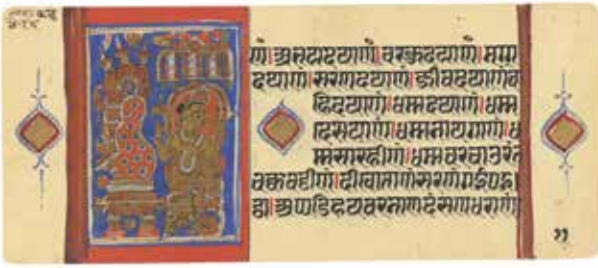 णं।अभयदयाणं।चरकुदयाणं।मग्ग
दयाणं।सरणदयाणं।जीवदयाणंबो
हिदयाणं।धम्मदयाणं।धम्म
देसयाणं।धम्मनायगाणं।ध
म्मसारहीणं।धम्मवरचाउरंत
चक्कवट्टीणं।दीवोताणंसरणंगईपइ
ट्ठा।अप्पडिहयवरनाणदंसणधराणं
११